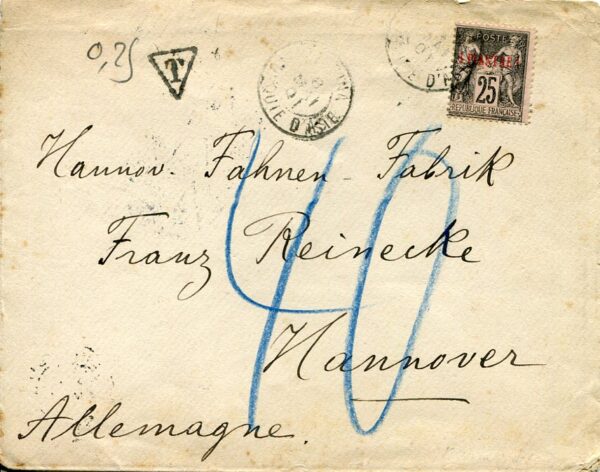 0,25
T
TURQUIE D'ASIE
POSTE
1 PIASTRE 1
25
REPUBLIQUE FRANÇAISE
Hannov. Fahnen-Fabrik
Franz Reinecke
Hannover
Allemagne.
40